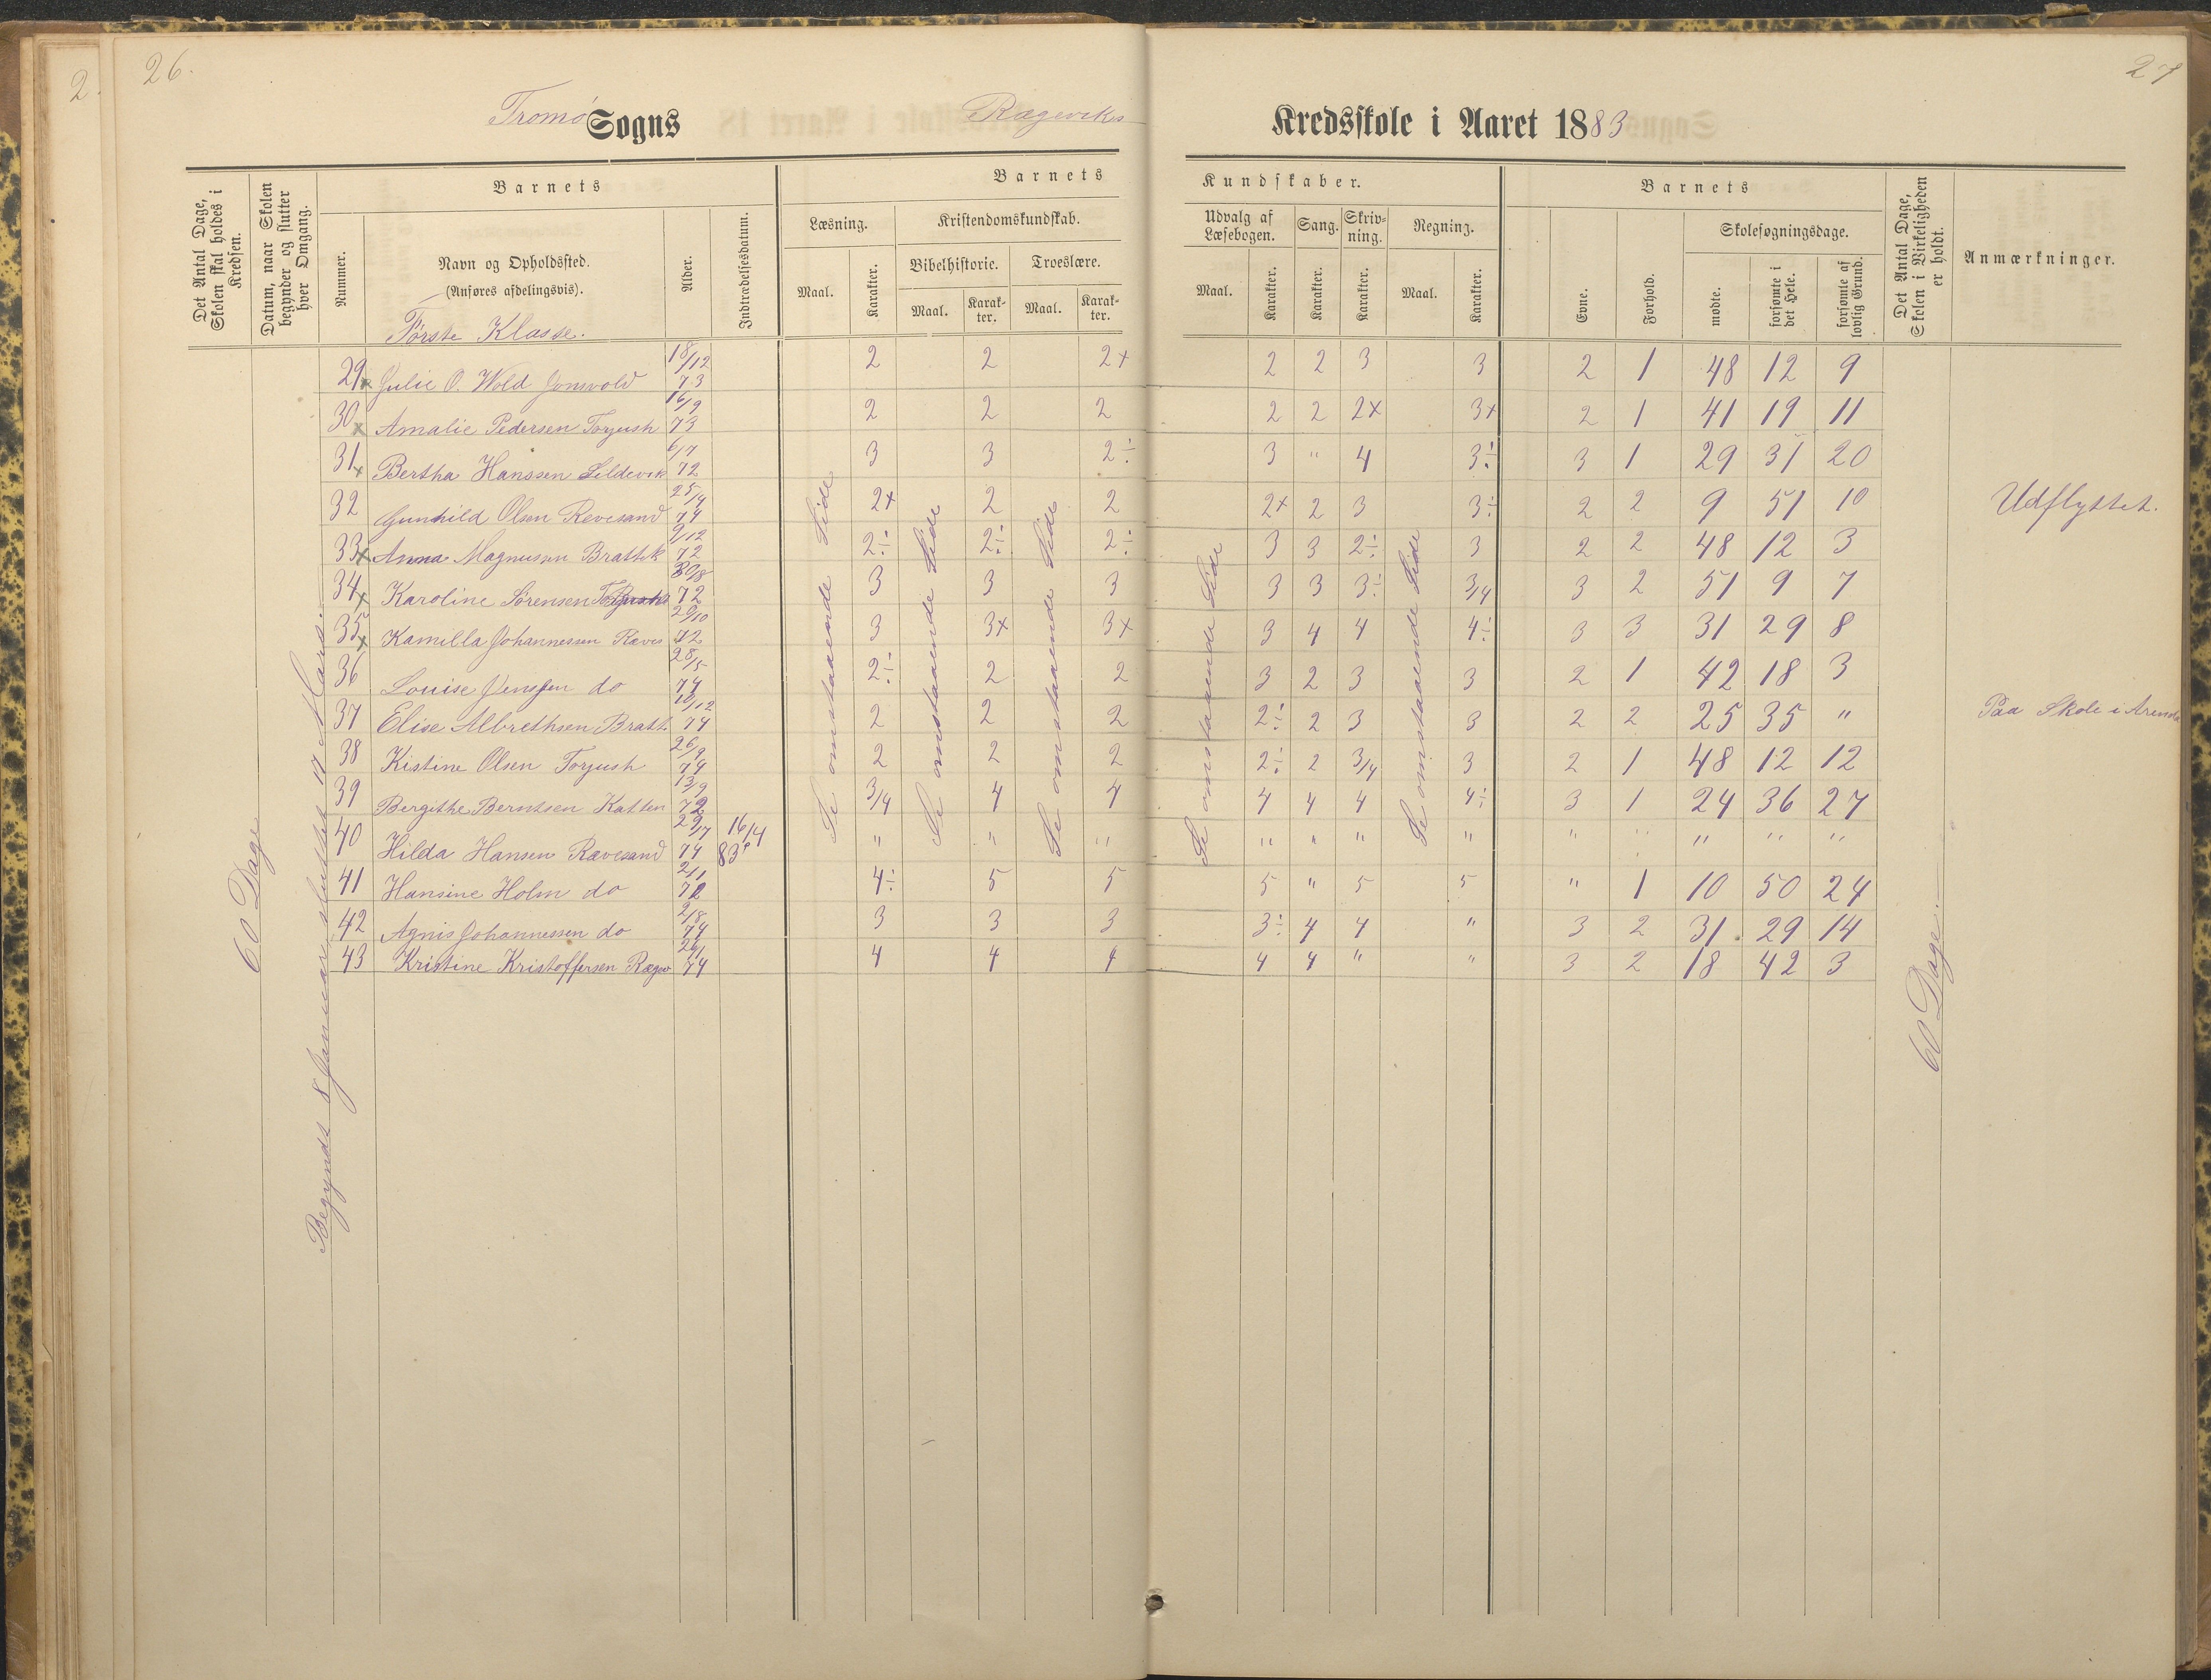 2.
26.
27
Tromø Sogns Rægeviks Kredsskole i Aaret 1883
Det Antal Dage, Skolen skal holdes i Kredsen.
Datum, naar Skolen begynder og slutter hver Omgang.
Barnets
Nummer.
Navn og Opholdssted.
(Anføres afdelingsvis).
Første Klasse.
Alder.
Indtrædelsesdatum.
Barnets Kundskaber.
Læsning.
Maal.
Karakter.
Kristendomskundskab.
Bibelhistorie.
Maal.
Karakter.
Troeslære.
Maal.
Karakter.
Udvalg af Læsebogen.
Maal.
Karakter.
Sang.
Karakter.
Skrivning.
Karakter.
Regning.
Maal.
Karakter.
Barnets
Evne.
Forhold.
Skolesøgningsdage.
mødte.
forsømte i det Hele.
forsømte af lovlig Grund.
Det Antal Dage, Skolen i Virkeligheden er holdt.
Anmærkninger.
29 x Julie O. Wold Jonsvold 18/12 73 2 2 2+ 2 2 3 3 2 1 48 12 9
30 x Amalie Pedersen Torjush 16/9 73 2 2 2 2 2 2x 3x 2 1 41 19 11
31 x Bertha Hanssen Sildevik 6/7 72 3 3 2÷ 3 " 4 3÷ 3 1 29 31 20
32 Gunhild Olsen Revesand 25/4 74 2+ 2 2 2+ 2 3 3÷ 2 2 9 51 10 Udflyttet.
33 x Anna Magnusen Brattek 9/12 72 2÷ 2÷ 2÷ 3 3 2÷ 3 2 2 48 12 3
34 x Karoline Sørensen Torjush 30/8 72 3 3 3 3 3 3÷ 3/4 3 2 51 9 7
35 x Kamilla Johannessen Ræves 20/10 72 3 3x 3x 3 4 4 4÷ 3 3 31 29 8
36 Louise Jenssen do 28/5 74 2÷ 2 2 3 2 3 3 2 1 42 18 3
37 Elise Albrethsen Bratt. 10/12 74 2 2 2 2÷ 2 3 3 2 2 25 35 " Paa Skole i Arenda
38 Kistine Olsen Torjush 26/9 74 2 2 2 2÷ 2 3/4 3 2 1 48 12 12
39 Bergithe Berntsen Katten 13/9 72 3/4 4 4 4 4 4 4÷ 3 1 24 36 27
40 Hilda Hansen Rævesand 29/7 74 16/4 83 " " " " " " " " " " " "
41 Hansine Holm do 2/1 72 4÷ 5 5 5 " 5 5 " 1 10 50 24
42 Agnis Johannessen do 2/8 74 3 3 3 3÷ 4 4 " 3 2 31 29 14
43 Kristine Kristoffersen Rægev 26/1 74 4 4 4 4 4 " " 3 2 18 42 3
60 Dage
Begyndt 8 Januar sluttet 17 Marts.
Se omstaaende Side
Se omstaaende Side
Se omstaaende Side
Se omstaaende Side
Se omstaaende Side
60 Dage.